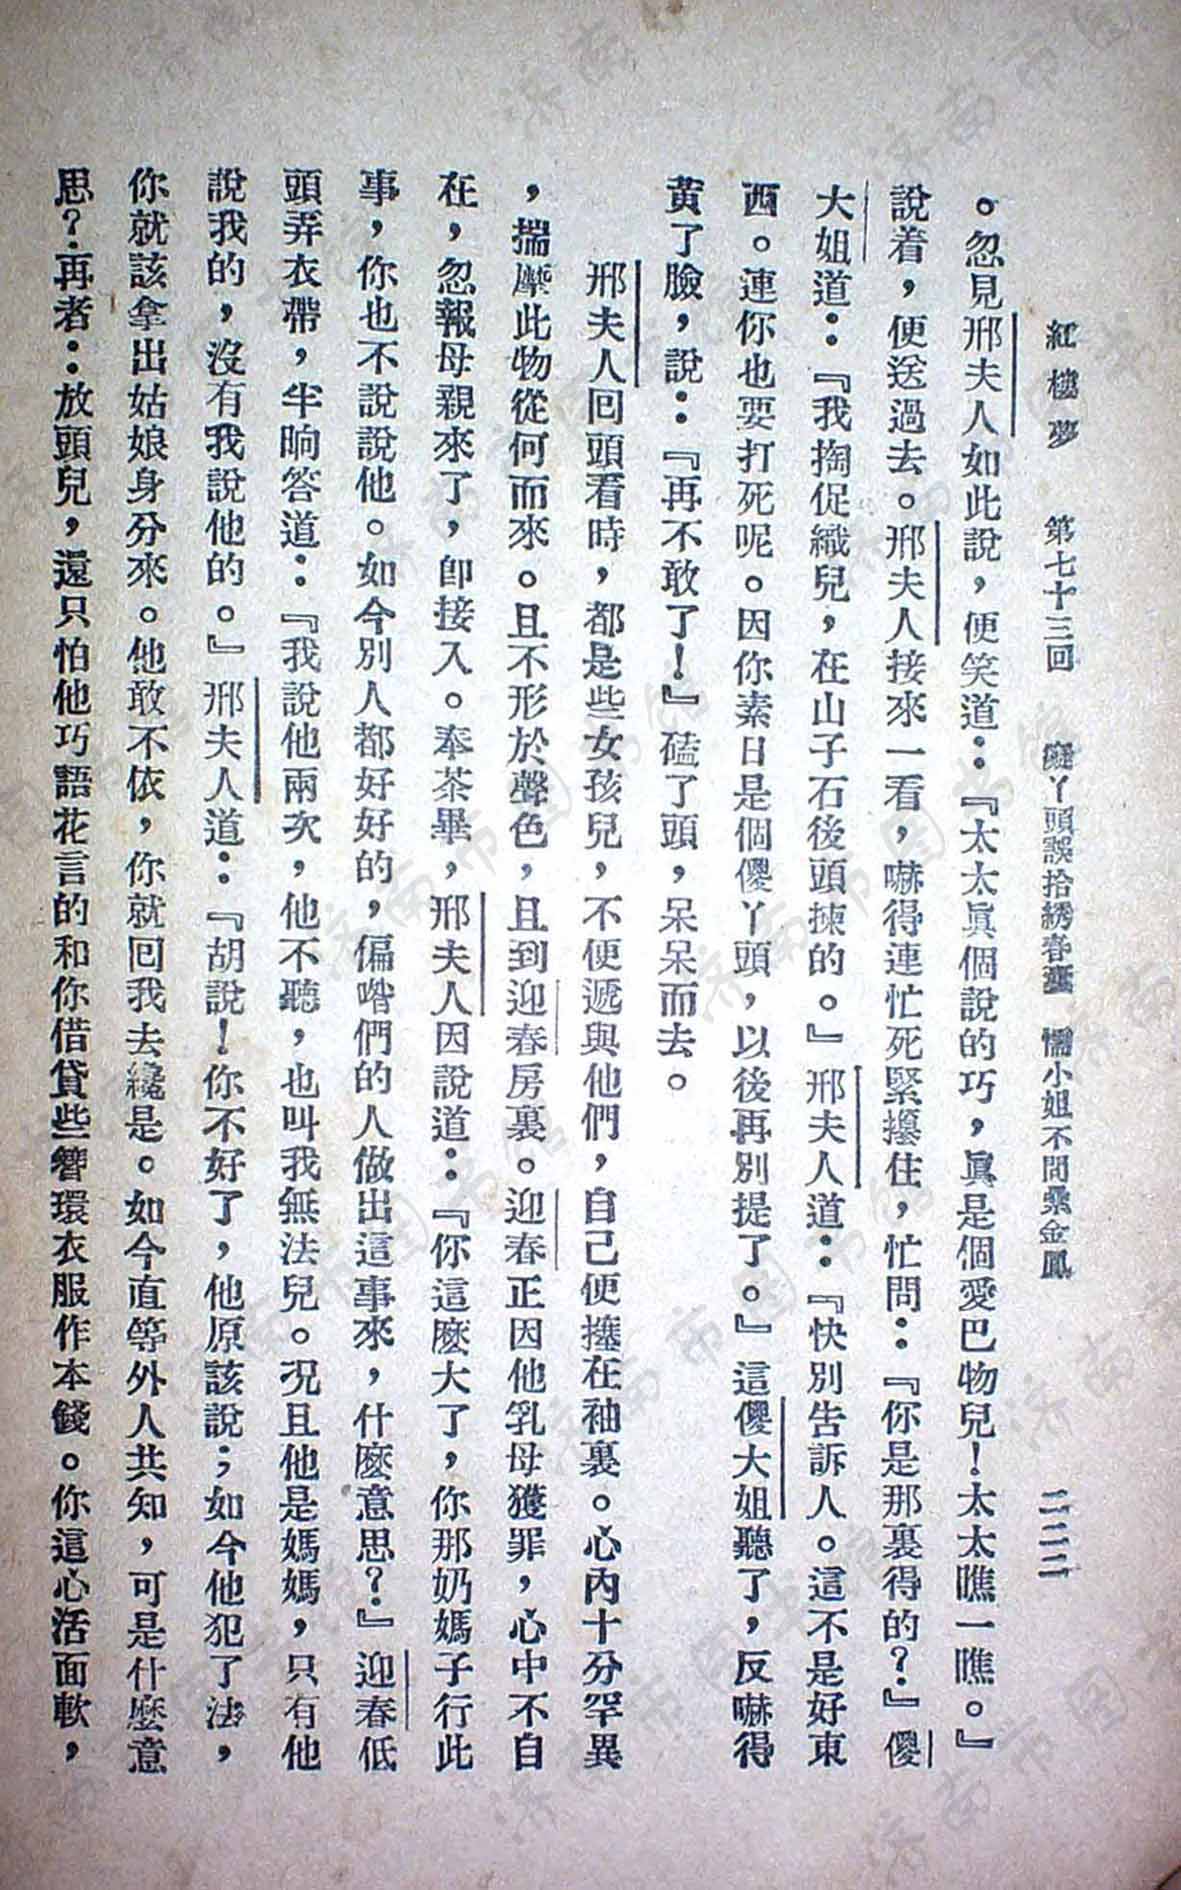 紅樓夢　第七十三回　癡丫頭誤拾綉春囊　懦小姐不問纍金鳳　二二二
。忽見邢夫人如此說，便笑道：『太太眞個說的巧，眞是個愛巴物兒！太太瞧一瞧。』
說着，便送過去。邢夫人接來一看，嚇得連忙死緊攥住，忙問：『你是那裏得的？』傻
大姐道：『我掏促織兒，在山子石後頭揀的。』邢夫人道：『快別告訴人。這不是好東
西。連你也要打死呢。因你素日是個傻丫頭，以後再別提了。』這傻大姐聽了，反嚇得
黃了臉，說：『再不敢了！』磕了頭，呆呆而去。
邢夫人回頭看時，都是些女孩兒，不便遞與他們，自己便攥在袖裏。心內十分罕異
，揣摩此物從何而來。且不形於聲色，且到迎春房裏。迎春正因他乳母獲罪，心中不自
在，忽報母親來了，卽接入。奉茶畢，邢夫人因說道：『你這麽大了，你那奶媽子行此
事，你也不說說他。如今別人都好好的，偏喒們的人做出這事來，什麽意思？』迎春低
頭弄衣帶，半晌答道：『我說他兩次，他不聽，也叫我無法兒。況且他是媽媽，只有他
說我的，沒有我說他的。』邢夫人道：『胡說！你不好了，他原該說；如今他犯了法，
你就該拿出姑娘身分來。他敢不依，你就回我去纔是。如今直等外人共知，可是什麽意
思？再者：放頭兒，還只怕他巧語花言的和你借貸些簪環衣服作本錢。你這心活面軟，
济南市图书馆